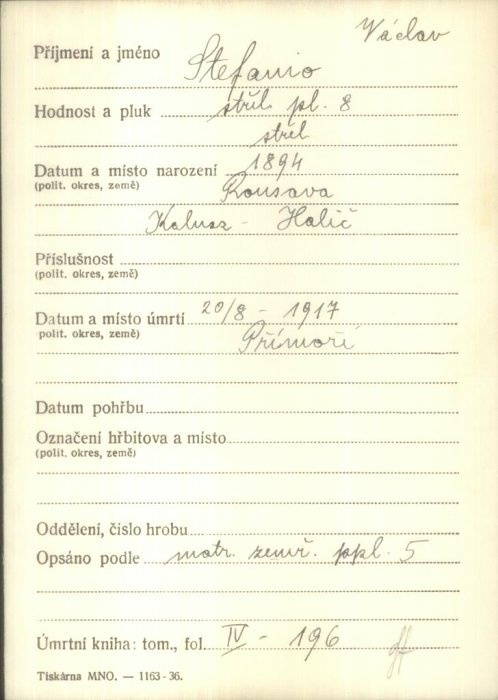 Václav
Příjmení a jméno Stefanio
Hodnost a pluk střel. pl. 8
střel
Datum a místo narození 1894
(polit. okres, země) Rousava
Kalusz - Halič
Příslušnost
(polit. okres, země)
Datum a místo úmrtí 20/8 - 1917
(polit. okres, země) Přímoří
Datum pohřbu
Označení hřbitova a místo
(polit. okres, země)
Oddělení, číslo hrobu
Opsáno podle matr. zemř. ppl. 5
Úmrtní kniha: tom., fol. IV - 196
Tiskárna MNO. — 1163-36.